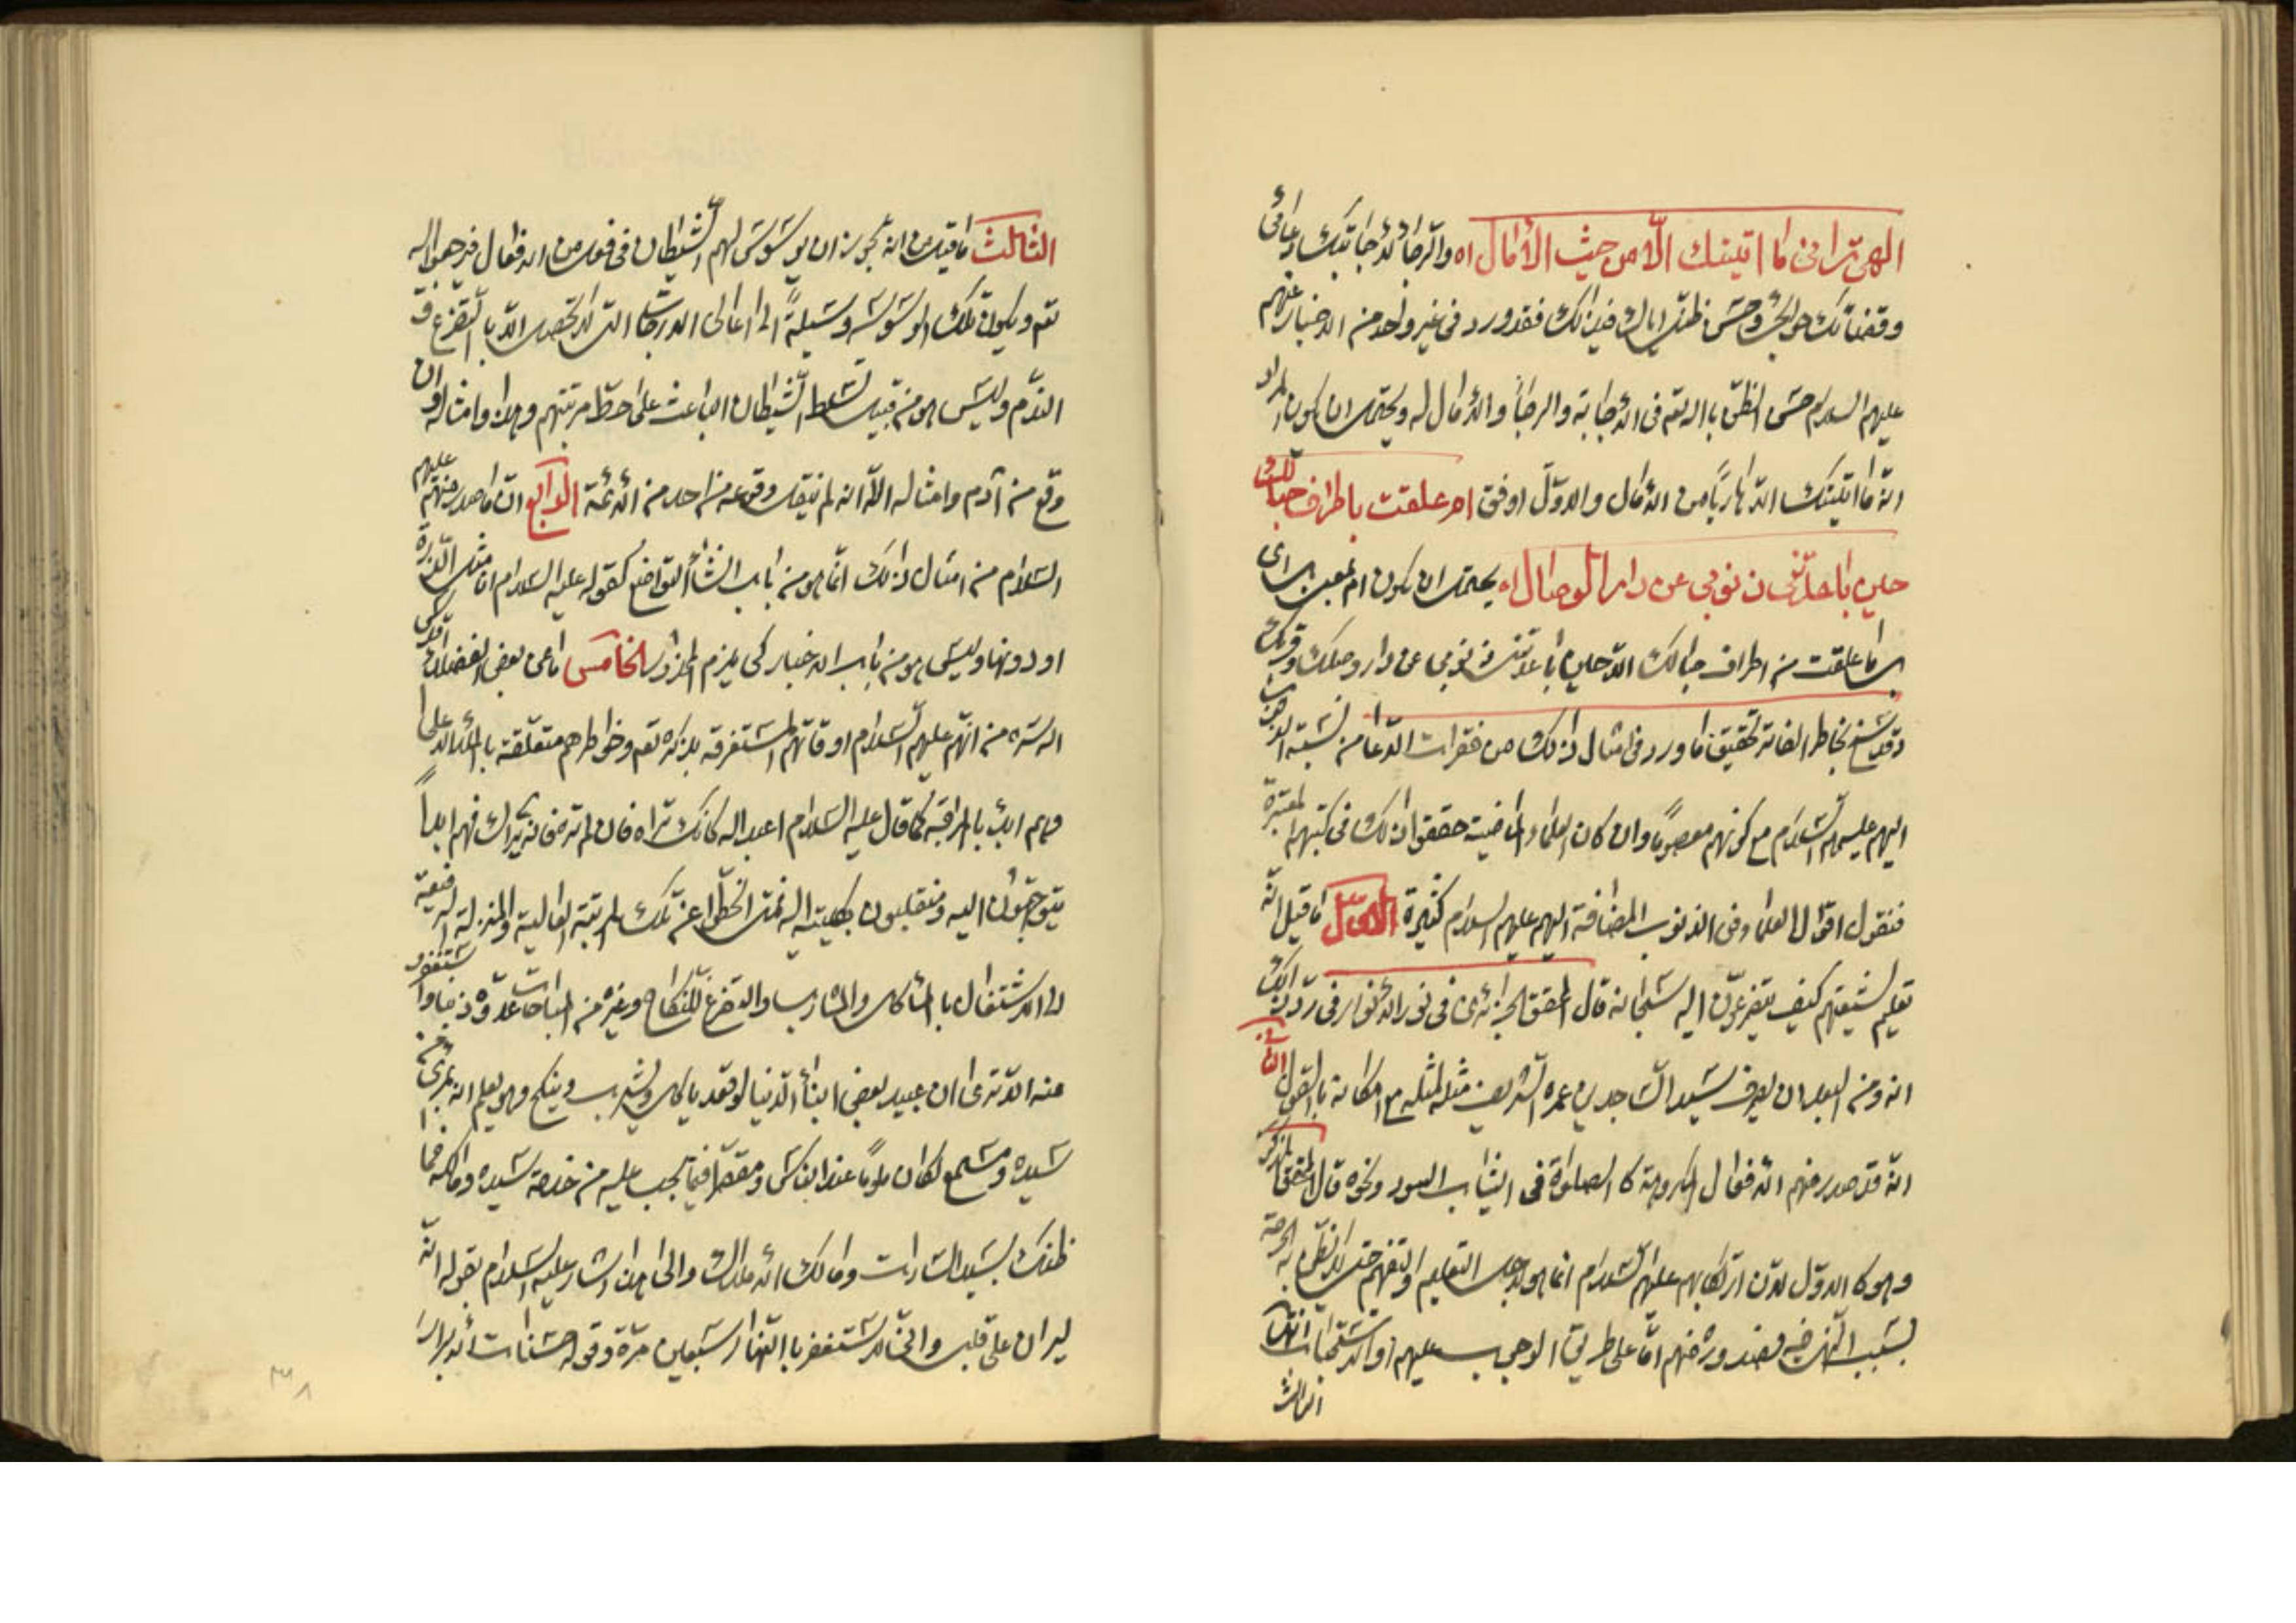 الهي تراني ما اتيتك الا من حيث الآمال اه والرجاء لاجابتك دعائي
وقضائك حوائجي وحسن ظني اياك في ذلك فقد ورد في غير واحد من الاخبار عنهم
عليهم السلام حسن الظن بالله تعم في الاجابة والرجاء والآمال له ويحتمل ان يكون المراد
انه ما اتيتك الا هاربا من الآمال والاول اوفق ام علقت باطراف حبالك
حين باعدتني ذنوبي عن دار الوصال اه يحتمل ان يكون ام بمعنى بل اي
بل ما علقت من اطراف حبالك الا حين باعدتني ذنوبي عن دار وصلك وقربك
وقد سنح بخاطر الفاتر تحقيق ما ورد في امثال ذلك من فقرات الدعاء من نسبة الذنوب
اليهم عليهم السلام مع كونهم معصوما وان كان العلماء الماضية حققوا ذلك في كتبهم المعتبرة
فنقول اقوال العلماء في الذنوب المضافة اليهم عليهم السلام كثيرة الاول ما قيل انه
تعليم لشيعتهم كيف يتضرعون اليه سبحانه قال المحقق الجزائري في نور الانوار في رد ذلك
انه ومن البعيد ان يصرف سيد الساجدين عمره الشريف مثله لمثله مع امكانه بالقول الثاني
انه قد صدر منهم الافعال المكروهة كالصلوة في الثياب السود ونحوه قال المحقق المذكور
وهو كالاول لان ارتكابهم عليهم السلام انما هو لاجل التعليم والتفهيم حتى لا يظن به الحرمة
بسبب النهي فيه فصدوره منهم اما على طريق الوجوب عليهم او الاستحباب انتهى
الثالث
الثالث ما قيل من انه يجوز ان يوسوس لهم الشيطان في فعل من الافعال فيرجعوا اليه
تعم ويكون تلك الوسوسة وسيلة الى اعالي الدرجات التي لا تحصل الا بالتضرع و
الندم وليس هو من قبيل تسلط الشيطان الباعث على حط مرتبتهم وهذا وامثاله وان
وقع من آدم وامثاله الا انه لم ينقل وقوعه من احد من الائمة الرابع ان ما صدر منهم عليهم
السلام من امثال ذلك انما هو من باب انشاء التواضع كقوله عليه السلام انا مثل الذرة
او دونها وليس هو من باب الاخبار كي يلزم المحذور الخامس ما عن بعض الفضلاء قدس
الله سره من انهم عليهم السلام اوقاتهم المستغرقة بذكره تعم وخواطرهم متعلقة بالملاء الاعلى
وهم ابدا بالمراقبة كما قال عليه السلام اعبد الله كانك تراه فان لم تره فانه يراك فهم ابداً
يتوجهون اليه ومنقلبون بكليته اليه فمتى انحطوا عن تلك المرتبة العالية والمنزلة الرفيعة
الى الاشتغال بالمأكل والمشارب والتفرغ للنكاح وغيره من المباحات عدوه ذنبا واستغفروا
منه الا ترى ان عبيد بعض ابناء الدنيا لو قعد ياكل ويشرب وينكح وهو يعلم انه بمرأى من
سيده ومسمع لكان ملوما عند الناس ومقصرا فيما يجب عليه من خدمة سيده ومالكه فما
ظنك بسيد السادات ومالك الاملاك والى هذا اشار عليه السلام بقوله انه
ليران على قلبي واني لاستغفر بالنهار سبعين مرة وقوله حسنات الابرار